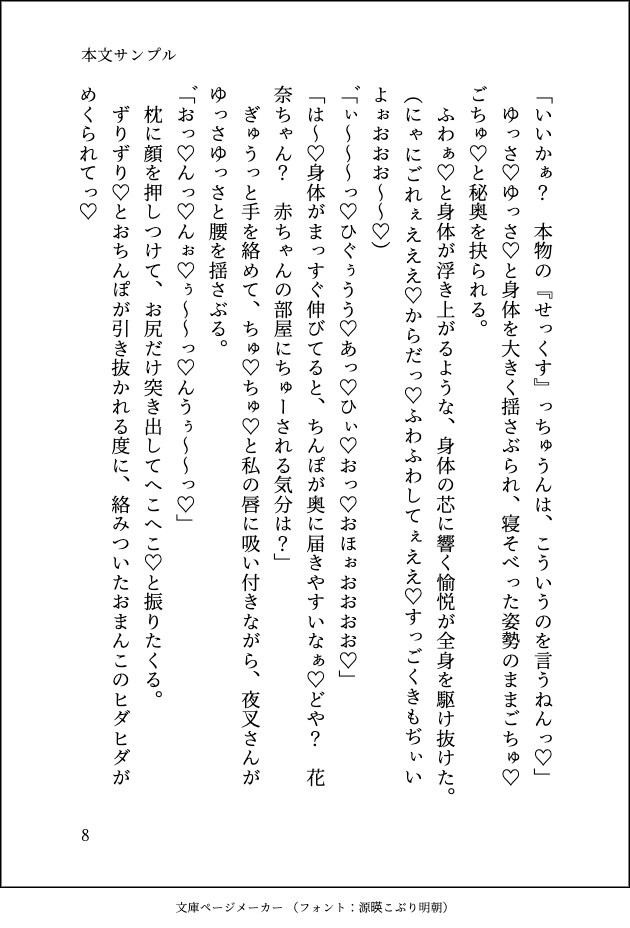 本文サンプル
「いいかぁ？　本物の『せっくす』っちゅうんは、こういうのを言うねんっ♡」
　ゆっさ♡ゆっさ♡と身体を大きく揺さぶられ、寝そべった姿勢のままごちゅ♡
ごちゅ♡と秘奥を抉られる。
　ふわぁ♡と身体が浮き上がるような、身体の芯に響く愉悦が全身を駆け抜けた。
（にゃにごれぇえええ♡からだっ♡ふわふわしてぇええ♡すっごくきもぢぃい
よぉおおお～～♡）
「゛ぃ～～～っ♡ひぐぅうう♡あっ♡ひぃ♡おっ♡おほぉおおおお♡」
「は～♡身体がまっすぐ伸びてると、ちんぽが奥に届きやすいなぁ♡どや？　花
奈ちゃん？　赤ちゃんの部屋にちゅーされる気分は？」
　ぎゅうっと手を絡めて、ちゅ♡ちゅ♡と私の唇に吸い付きながら、夜叉さんが
ゆっさゆっさと腰を揺さぶる。
「゛おっ♡んっ♡んぉ♡ぅ～～っ♡んうぅ～～っ♡」
　枕に顔を押しつけて、お尻だけ突き出してへこへこ♡と振りたくる。
　ずりずり♡とおちんぽが引き抜かれる度に、絡みついたおまんこのヒダヒダが
めくられてっ♡
8
文庫ページメーカー（フォント：源暎こぶり明朝）